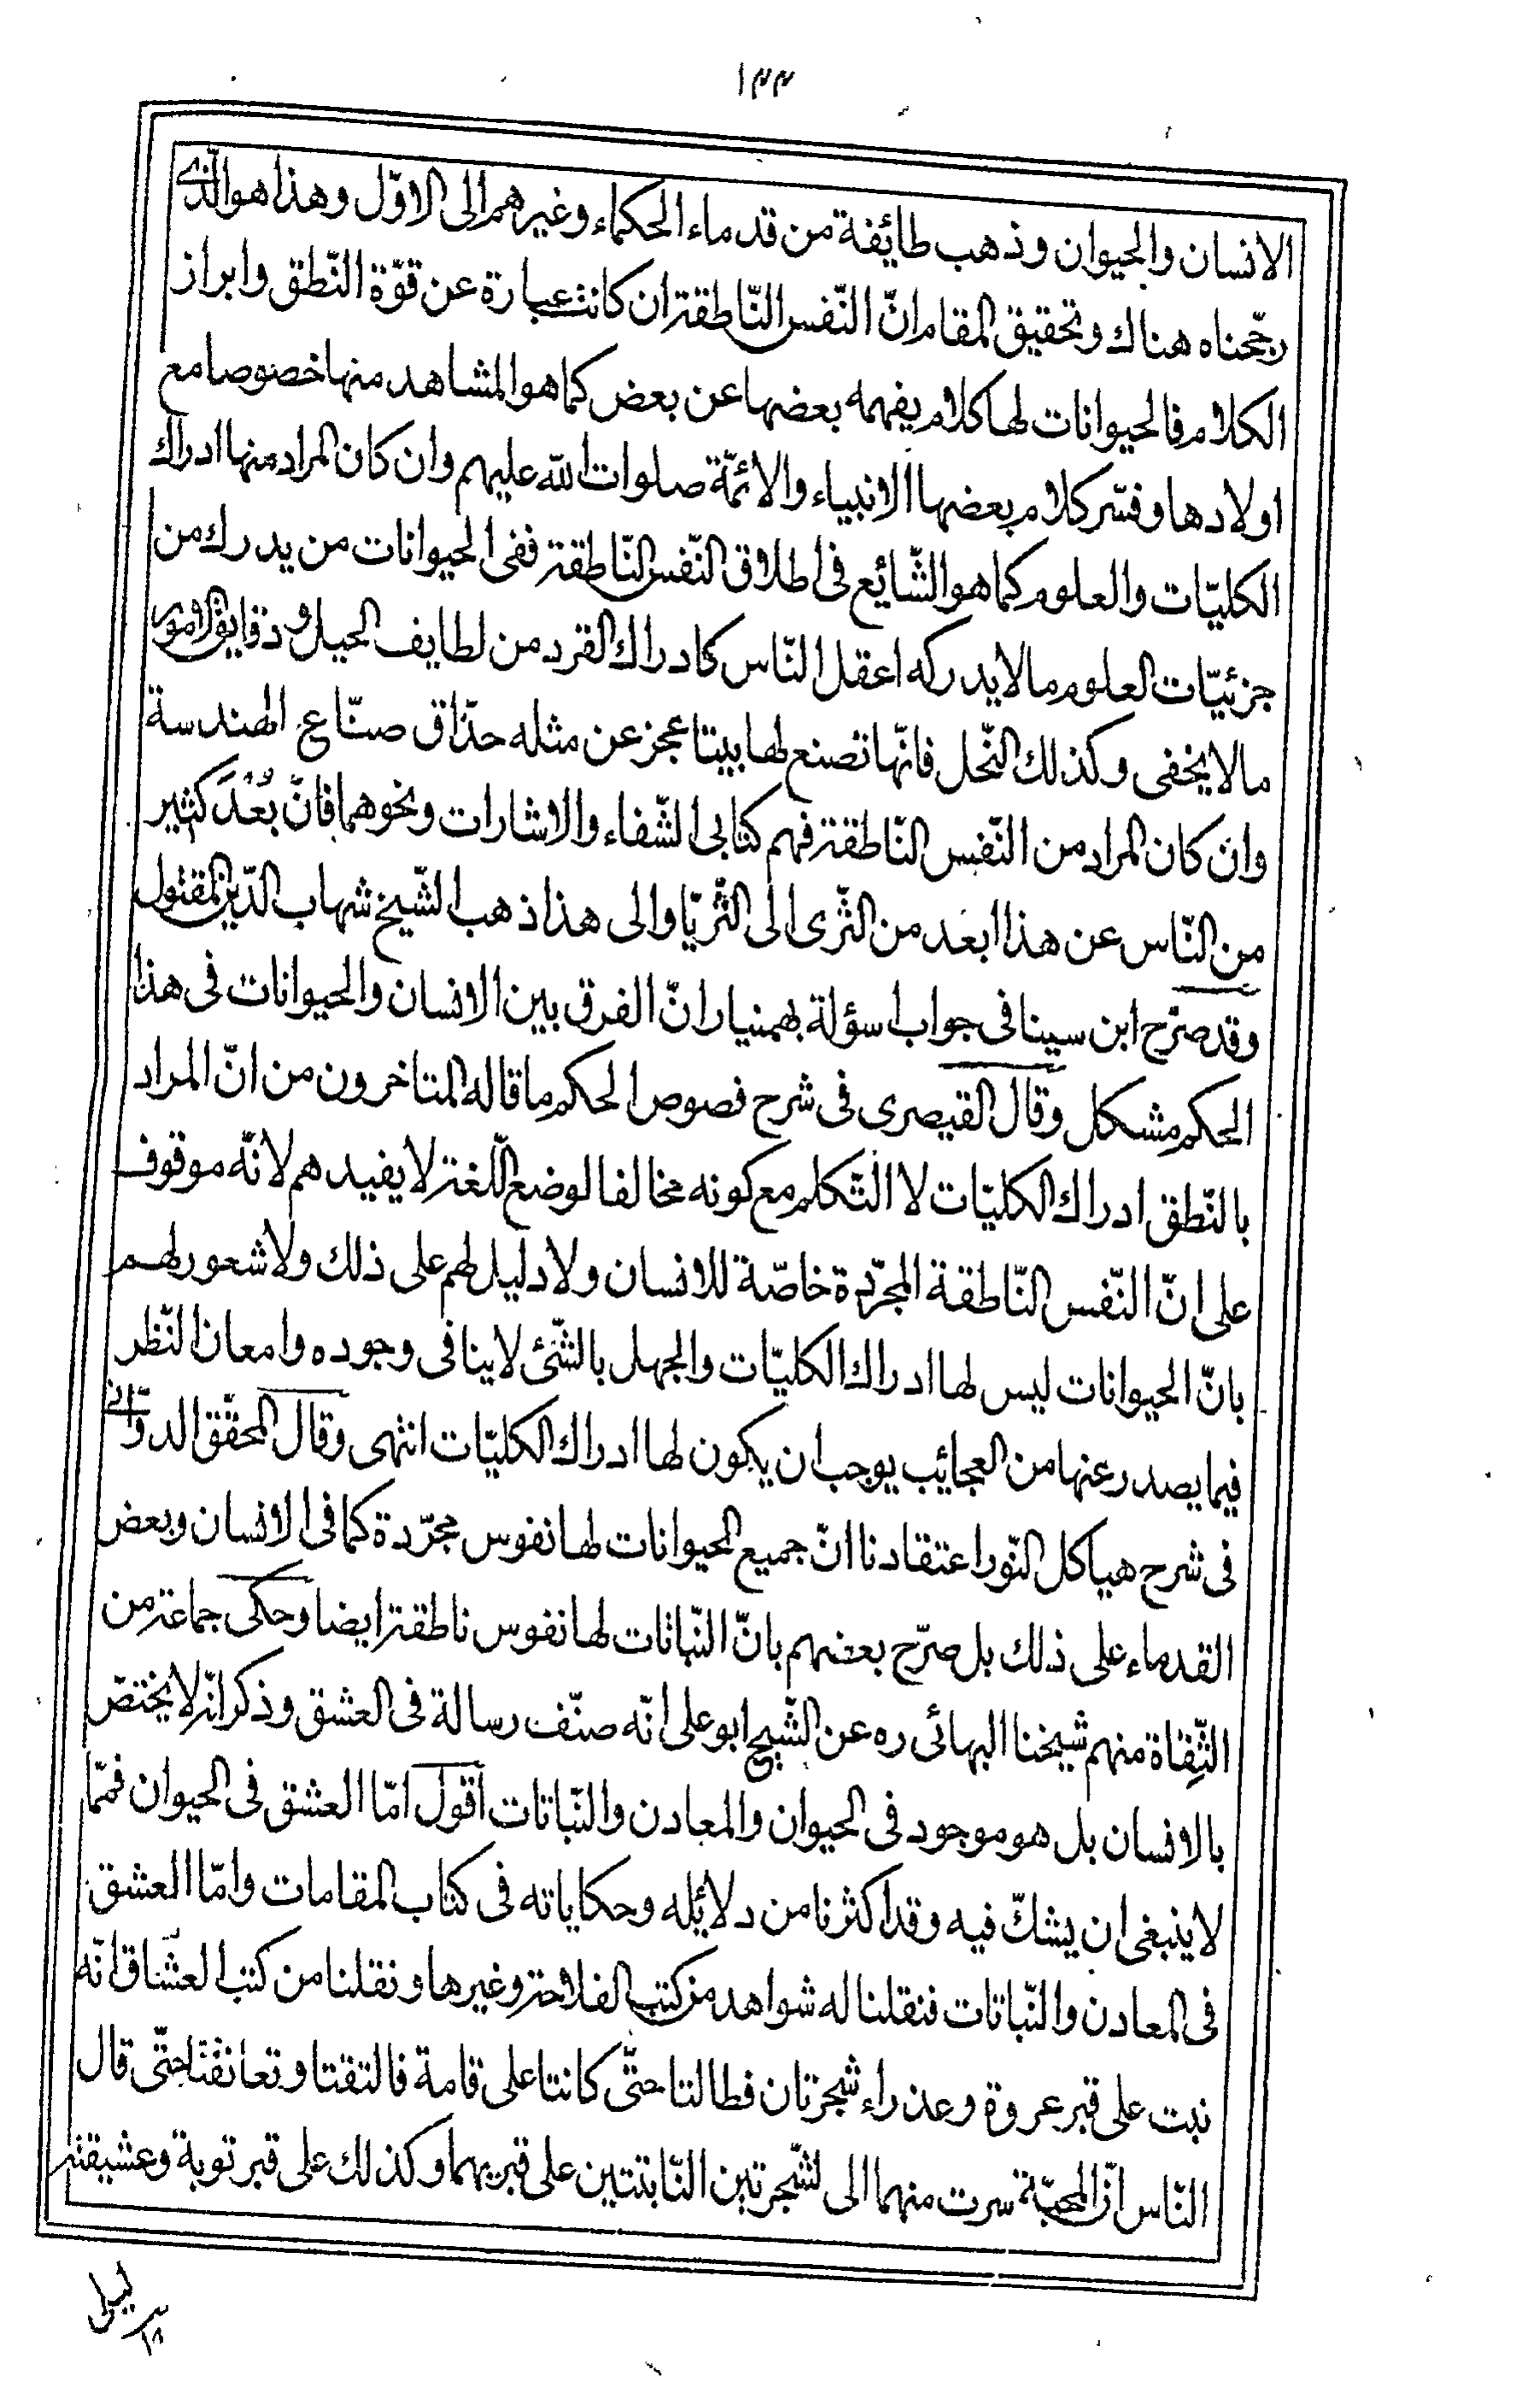 ١٣٣
الانسان والحيوان وذهب طائفة من قدماء الحكماء وغيرهم الى الاوّل وهذا هو الّذى
رجّحناه هناك وتحقيق المقام انّ النّفس النّاطقة ان كانت عبارة عن قوّة النّطق وابراز
الكلام فالحيوانات لها كلام يفهمه بعضها عن بعض كما هو المشاهد منها خصوصا مع
اولادها وفسّر كلام بعضها الانبياء والائمّة صلوات الله عليهم وان كان المراد منها ادراك
الكليّات والعلوم كما هو الشّايع فى اطلاق النّفس النّاطقة ففى الحيوانات من يدرك من
جزئيّات العلوم ما لا يدركه اعقل النّاس كادراك القرد من لطايف الحيل ودقايق الامور
ما لا يخفى وكذلك النّحل فانّها تصنع لها بيتا عجز عن مثله حذّاق صنّاع الهندسة
وان كان المراد من النّفس النّاطقة فهم كتابى الشّفاء والاشارات ونحوهما فانّ بُعْدَ كثير
من النّاس عن هذا ابعد من الثّرى الى الثّريّا والى هذا ذهب الشّيخ شهاب الدّين المقتول
وقد صرّح ابن سينا فى جواب اسؤلة بهمنيار انّ الفرق بين الانسان والحيوانات فى هذا
الحكم مشكل وقال القيصرى فى شرح فصوص الحكم ما قاله المتاخرون من انّ المراد
بالنّطق ادراك الكليّات لا التّكلم مع كونه مخالفا لوضع اللّغة لا يفيدهم لانّه موقوف
على انّ النّفس النّاطقة المجرّدة خاصّة للانسان ولا دليل لهم على ذلك ولا شعور لهم
بانّ الحيوانات ليس لها ادراك الكليّات والجهل بالشّئ لا ينافى وجوده وامعان النّظر
فيما يصدر عنها من العجائب يوجب ان يكون لها ادراك الكليّات انتهى وقال المحقّق الدوّانى
فى شرح هياكل النّور اعتقادنا انّ جميع الحيوانات لها نفوس مجرّدة كما فى الانسان وبعض
القدماء على ذلك بل صرّح بعضهم بانّ النّباتات لها نفوس ناطقة ايضا وحكى جماعة من
الثّقاة منهم شيخنا البهائى ره عن الشّيخ ابو على انّه صنّف رسالة فى العشق وذكر انّه لا يختصّ
بالانسان بل هو موجود فى الحيوان والمعادن والنّباتات اقول امّا العشق فى الحيوان فممّا
لا ينبغى ان يشكّ فيه وقد اكثرنا من دلائله وحكاياته فى كتاب المقامات وامّا العشق
فى المعادن والنّباتات فنقلنا له شواهد من كتب الفلاحة وغيرها ونقلنا من كتب العشّاق انّه
نبت على قبر عروة وعذراء شجرتان فطالتا حتّى كانتا على قامة فالتقتا وتعانقتا حتّى قال
النّاس انّ المحبّة سرت منهما الى الشّجرتين النّابتتين على قبريهما وكذلك على قبر توبة وعشيقته
ليلى